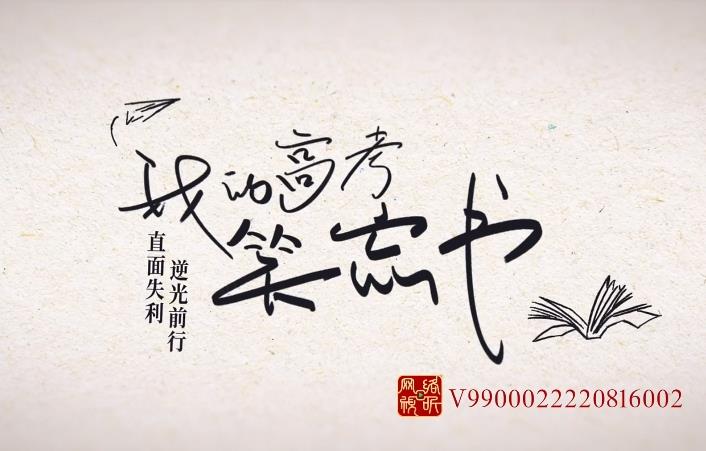 我的高考
笑忘书
直面失利
逆光前行
网络视听
V9900022220816002